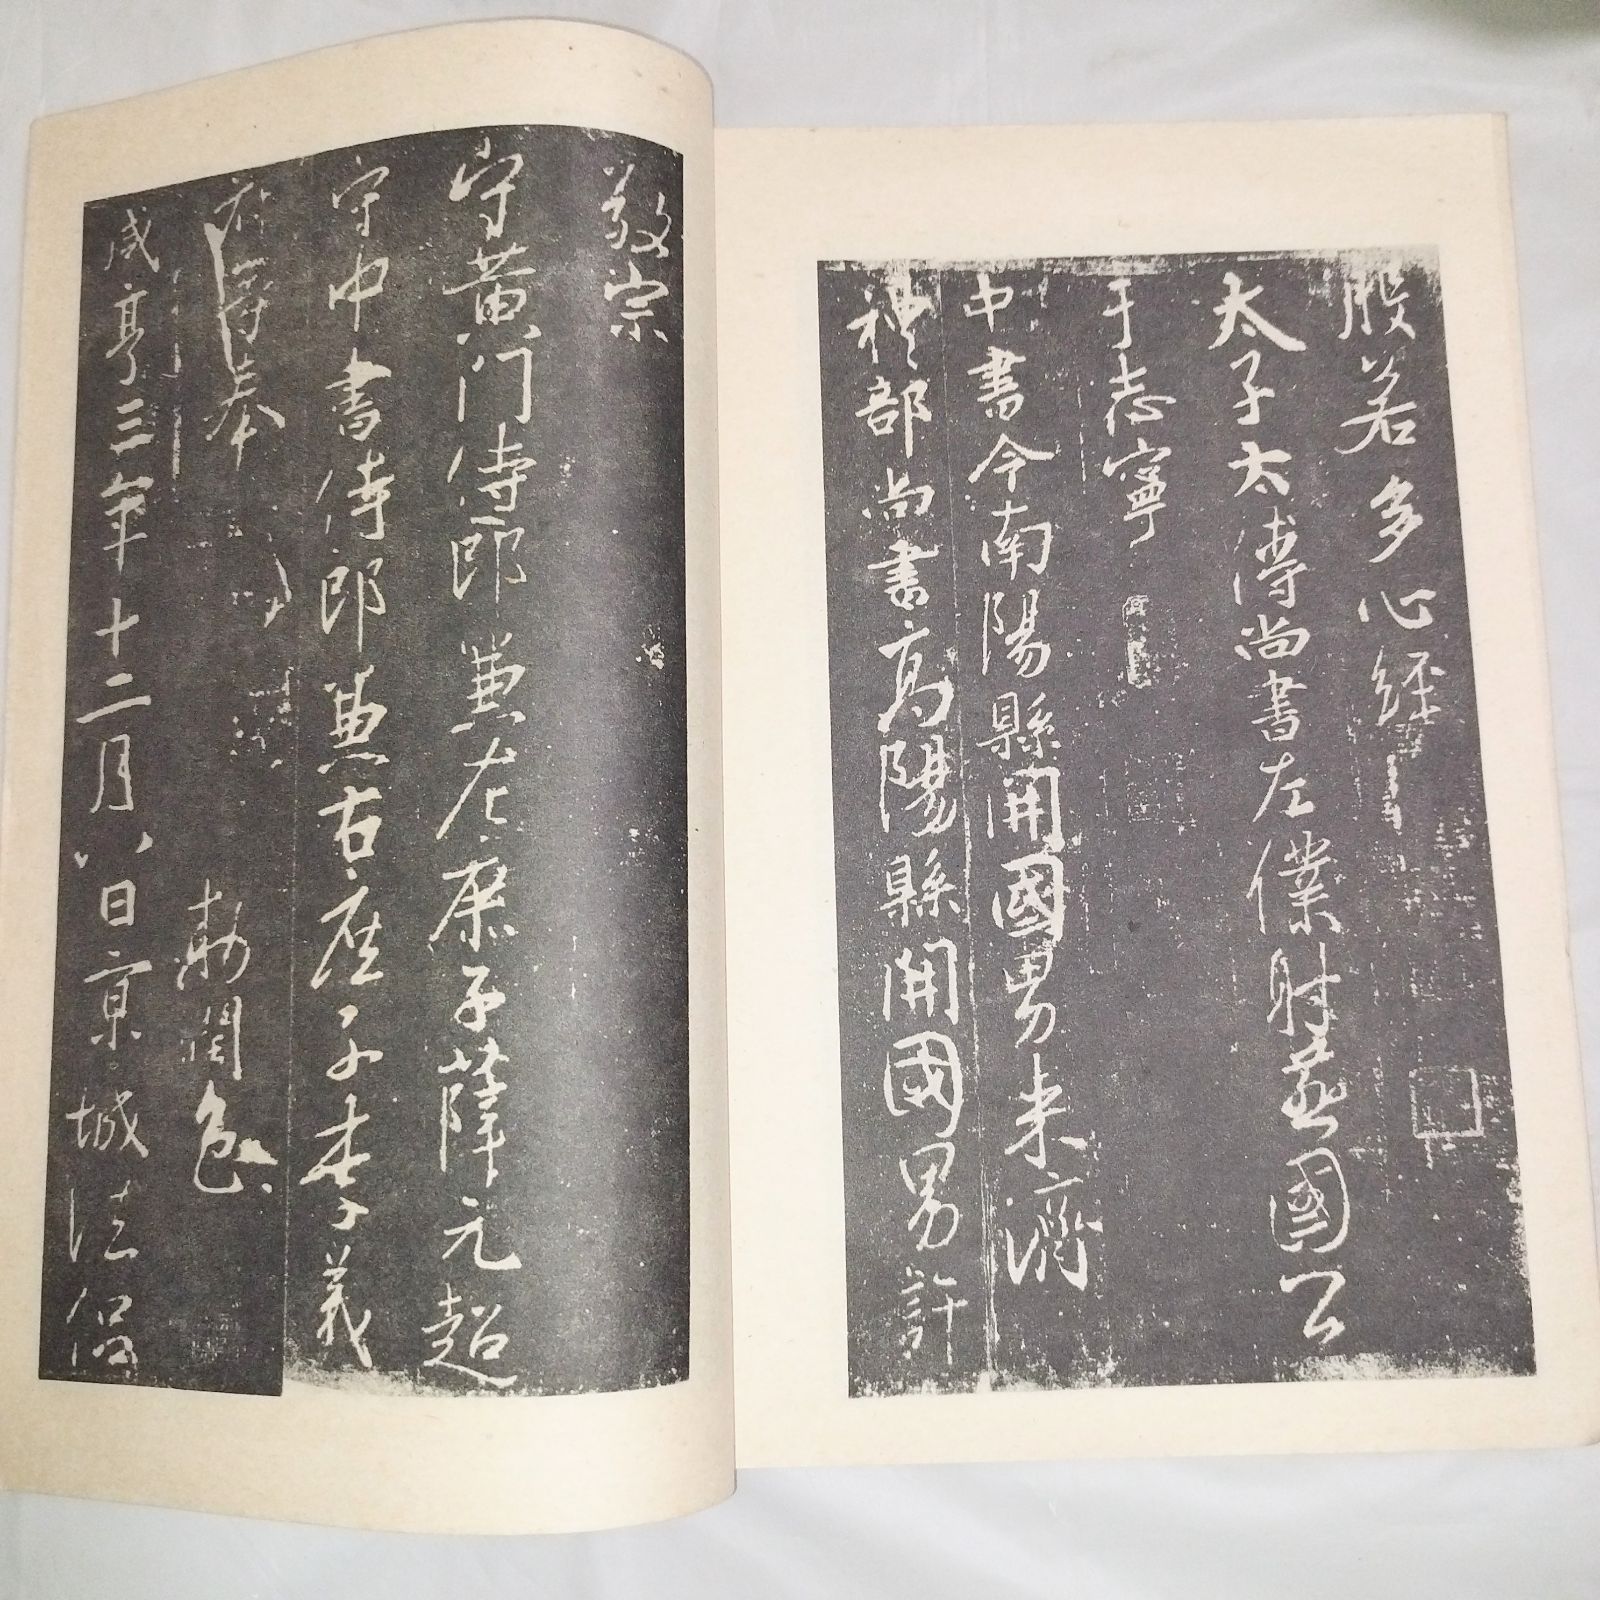 般若多心經
太子太傅尚書左僕射燕國公
于志寧
中書令南陽縣開國男来濟
禮部尚書高陽縣開國男許
敬宗
守黄門侍郎兼左庶子薛元超
守中書侍郎兼右庶子李義
府等奉 勅潤色
咸亨三年十二月八日京城法侶